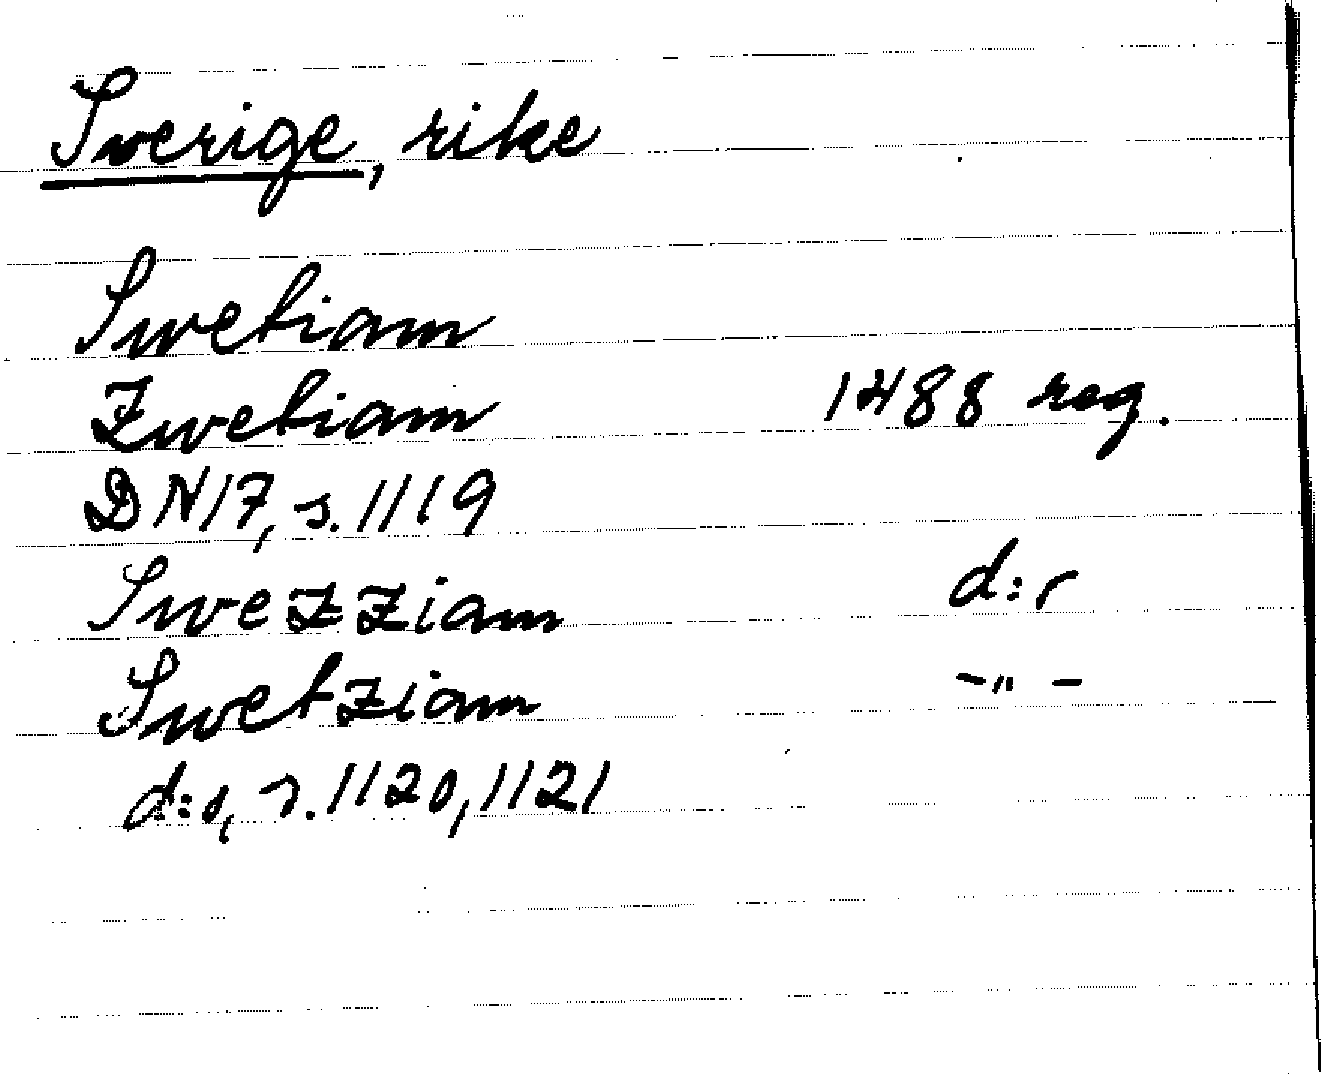 Sverige, rike
Swetiam
Zwetiam 1488 reg.
DN17, s. 1119
Swezziam d:r
Swetziam -"-
d:o, s. 1120, 1121